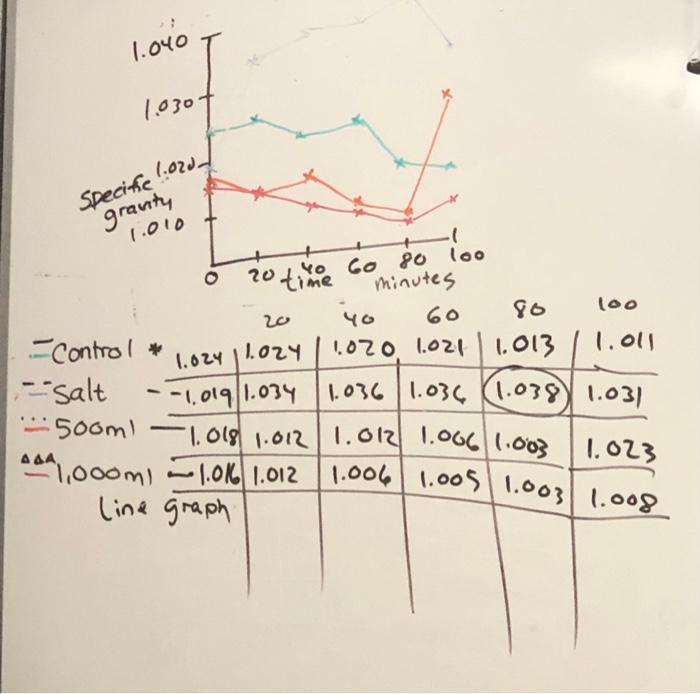 1.040
1.030
1.020
Specific
gravity
1.010
0 20 40 60 80 100
time minutes
20 40 60 80 100
Control * 1.024 1.024 1.020 1.021 1.013 1.011
Salt 1.019 1.034 1.036 1.036 1.038 1.031
500ml 1.018 1.012 1.012 1.006 1.003 1.023
1,000ml 1.016 1.012 1.006 1.005 1.003 1.008
Line graph